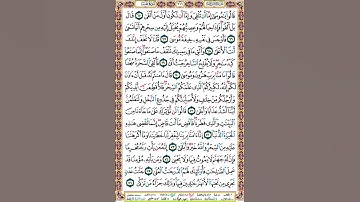 قَالُوا۟ يَـٰمُوسَىٰٓ إِمَّآ أَن تُلْقِىَ وَإِمَّآ أَن نَّكُونَ أَوَّلَ مَنْ أَلْقَىٰ ۝ قَالَ
بَلْ أَلْقُوا۟ فَإِذَا حِبَالُهُمْ وَعِصِيُّهُمْ يُخَيَّلُ إِلَيْهِ مِن سِحْرِهِمْ أَنَّهَا تَسْعَىٰ
۝ فَأَوْجَسَ فِى نَفْسِهِۦ خِيفَةً مُّوسَىٰ ۝ قُلْنَا لَا تَخَفْ إِنَّكَ
أَنتَ ٱلْأَعْلَىٰ ۝ وَأَلْقِ مَا فِى يَمِينِكَ تَلْقَفْ مَا صَنَعُوٓا۟ إِنَّمَا صَنَعُوا۟
كَيْدُ سَـٰحِرٍ وَلَا يُفْلِحُ ٱلسَّاحِرُ حَيْثُ أَتَىٰ ۝ فَأُلْقِىَ ٱلسَّحَرَةُ سُجَّدًا
قَالُوٓا۟ ءَامَنَّا بِرَبِّ هَـٰرُونَ وَمُوسَىٰ ۝ قَالَ ءَامَنتُمْ لَهُۥ قَبْلَ أَنْ ءَاذَنَ لَكُمْ
إِنَّهُۥ لَكَبِيرُكُمُ ٱلَّذِى عَلَّمَكُمُ ٱلسِّحْرَ فَلَأُقَطِّعَنَّ أَيْدِيَكُمْ
وَأَرْجُلَكُم مِّنْ خِلَـٰفٍ وَلَأُصَلِّبَنَّكُمْ فِى جُذُوعِ ٱلنَّخْلِ وَلَتَعْلَمُنَّ
أَيُّنَآ أَشَدُّ عَذَابًا وَأَبْقَىٰ ۝ قَالُوا۟ لَن نُّؤْثِرَكَ عَلَىٰ مَا جَآءَنَا مِنَ
ٱلْبَيِّنَـٰتِ وَٱلَّذِى فَطَرَنَا فَٱقْضِ مَآ أَنتَ قَاضٍ إِنَّمَا تَقْضِى هَـٰذِهِ
ٱلْحَيَوٰةَ ٱلدُّنْيَآ ۝ إِنَّآ ءَامَنَّا بِرَبِّنَا لِيَغْفِرَ لَنَا خَطَـٰيَـٰنَا وَمَآ أَكْرَهْتَنَا
عَلَيْهِ مِنَ ٱلسِّحْرِ وَٱللَّهُ خَيْرٌ وَأَبْقَىٰٓ ۝ إِنَّهُۥ مَن يَأْتِ رَبَّهُۥ مُجْرِمًا
فَإِنَّ لَهُۥ جَهَنَّمَ لَا يَمُوتُ فِيهَا وَلَا يَحْيَىٰ ۝ وَمَن يَأْتِهِۦ مُؤْمِنًا قَدْ
عَمِلَ ٱلصَّـٰلِحَـٰتِ فَأُو۟لَـٰٓئِكَ لَهُمُ ٱلدَّرَجَـٰتُ ٱلْعُلَىٰ ۝ جَنَّـٰتُ عَدْنٍ
تَجْرِى مِن تَحْتِهَا ٱلْأَنْهَـٰرُ خَـٰلِدِينَ فِيهَا وَذَٰلِكَ جَزَآءُ مَن تَزَكَّىٰ